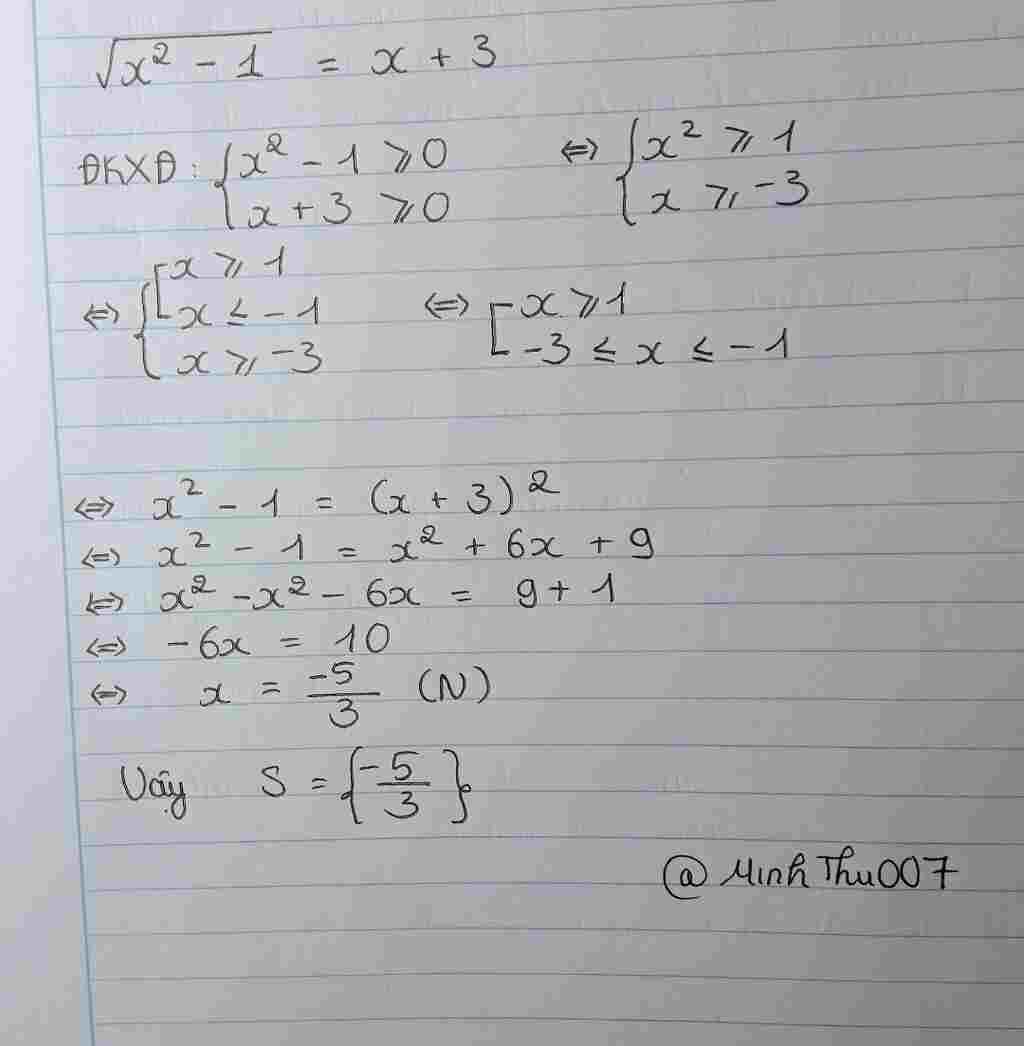 √(x² - 1) = x + 3
ĐKXĐ: { x² - 1 ⩾ 0 ⇔ { x² ⩾ 1
x + 3 ⩾ 0 x ⩾ -3
⇔ { [ x ⩾ 1 ⇔ [ x ⩾ 1
x ≤ -1 -3 ≤ x ≤ -1
x ⩾ -3
⇔ x² - 1 = (x + 3)²
⇔ x² - 1 = x² + 6x + 9
⇔ x² - x² - 6x = 9 + 1
⇔ -6x = 10
⇔ x = -5/3 (N)
Vậy S = {-5/3}
@MinhThu007